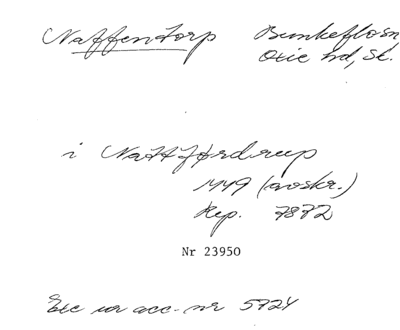 Naffentorp Bunkeflo sn
Oxie hd, Sk.
i Nattfjørdrup
1449 (avskr.)
Rep. 7872
Nr 23950
Exc ur acc. nr 5724